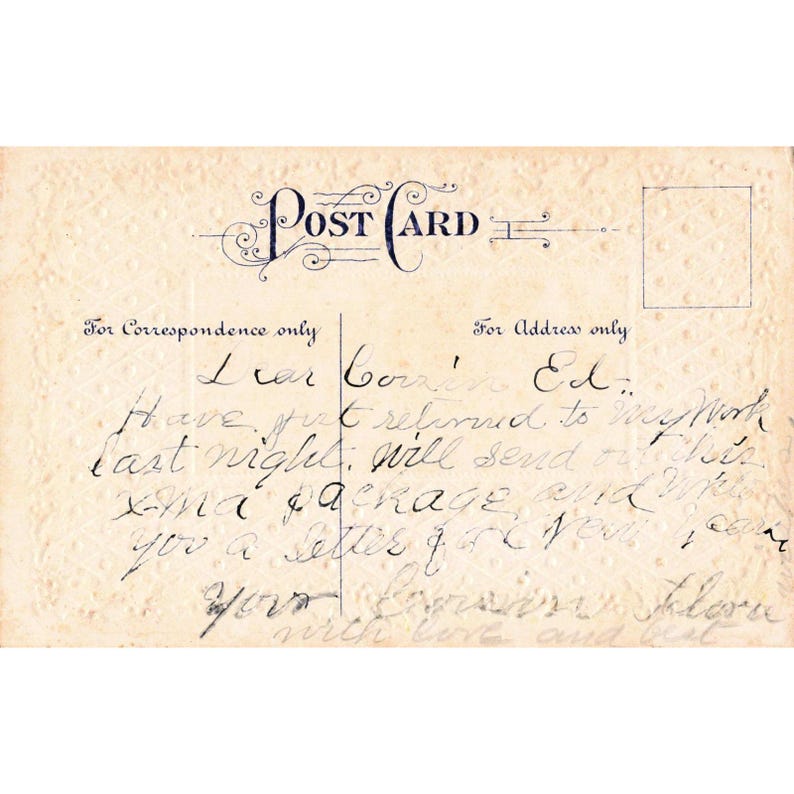 POST CARD
For Correspondence only
For Address only
Dear Cousin Ed..
Have just returned to My Work
last night. Will send out this
x-ma package and write
you a letter for New Years
Your Cousin Flora
with love and best